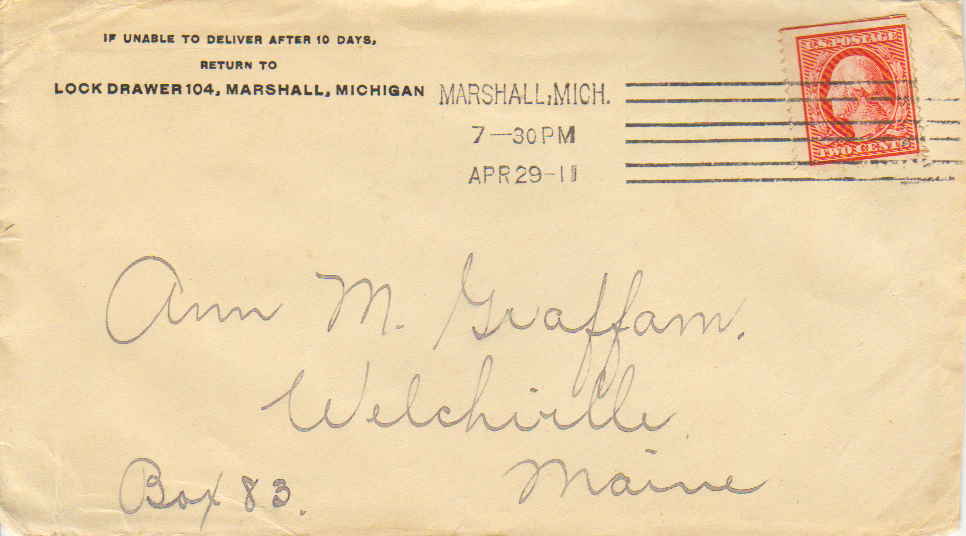 IF UNABLE TO DELIVER AFTER 10 DAYS,
RETURN TO
LOCK DRAWER 104, MARSHALL, MICHIGAN
MARSHALL, MICH.
7-30 PM
APR 29-11
U.S. POSTAGE
TWO CENTS
Ann M. Graffam.
Welchville
Maine
Box 83.